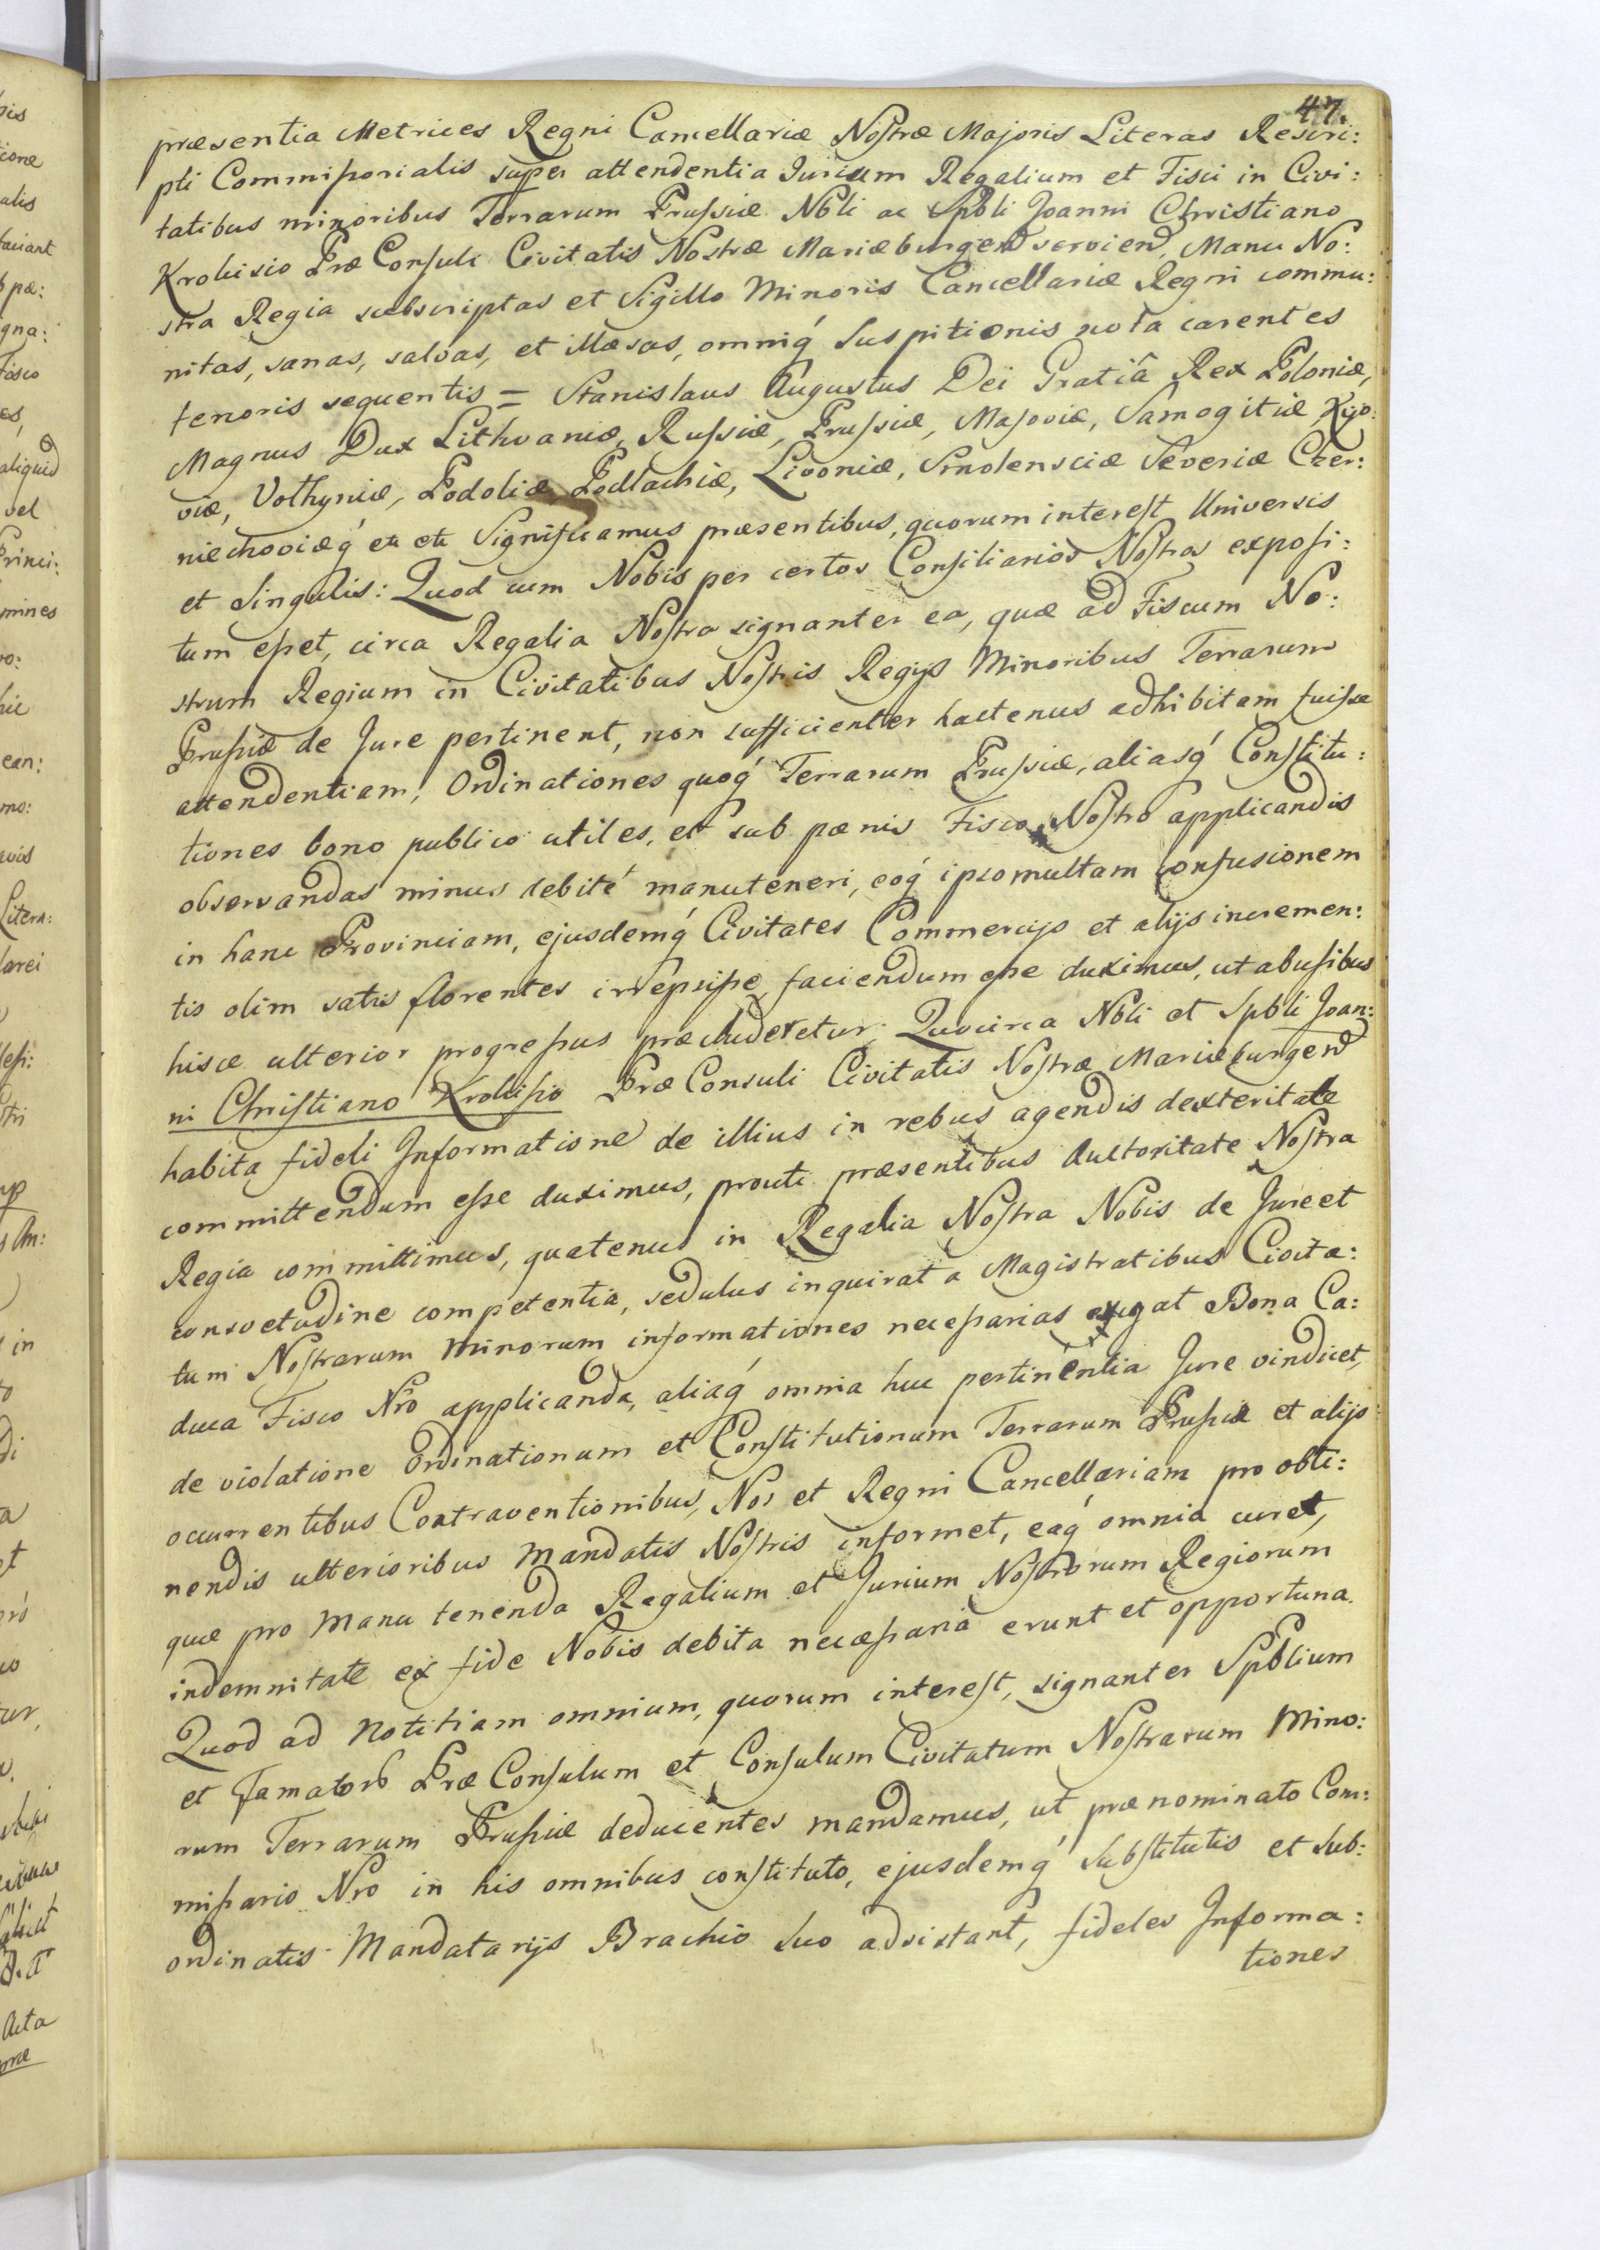 47.
præsentia Metrices Regni Cancellariæ Nostræ Majoris Literas Rescri:
pti Commissorialis super attendentia Jurium Regalium et Fisci in Civi:
tatibus minoribus Terrarum Prussiæ Nbli ac Spbli Joanni Christiano
Krolisio Præ Consuli Civitatis Nostræ Mariæburgend servien, Manu No:
stra Regia subscriptas et Sigillo Minoris Cancellariæ Regni commu:
nitas, sanas, salvas, et illæsas, omniq́ Suspitionis nota carentes
tenoris sequentis = Stanislaus Augustus Dei Gratiâ Rex Poloniæ,
Magnus Dux Lithvaniæ, Russiæ, Prussiæ, Masoviæ, Samogitiæ, Kyo:
viæ, Volhyniæ, Podoliæ, Podlachiæ, Livoniæ, Smolensciæ Severiæ Czer:
niechoviæq́ etc etc Significamus præsentibus, quorum interest Universis
et Singulis: Quod cum Nobis per certos Consiliarios Nostros exposi:
tum esset, circa Regalia Nostra signanter ea, quæ ad Fiscum No:
strum Regium in Civitatibus Nostris Regijs Minoribus Terrarum
Prussiæ de Jure pertinent, non sufficienter hactenus adhibitam fuisse
attendentiam, Ordinationes quoq́ Terrarum Prussiæ, aliasq́ Constitu:
tiones bono publico utiles, et sub pænis Fisco Nostro applicandis
observandas minus debité manuteneri, eoq́ ipso multam confusionem
in hanc Provinciam, ejusdemq́ Civitates Commercijs et alijs incremen:
tis olim satis florentes irrepsisse, faciendum esse duximus, ut abusibus
hisce ulterior progressus præcluderetur. Quocirca Nbli et Spbli Joan:
ni Christiano Krolisio Præ Consuli Civitatis Nostræ Mariæburgend
habita fideli Informatione de illius in rebus agendis dexteritate
committendum esse duximus, prout præsentibus Authoritate Nostra
Regia committimus, quatenus in Regalia Nostra Nobis de Jure et
consvetudine competentia, sedulus inquirat a Magistratibus Civita:
tum Nostrarum Minorum informationes necessarias exigat Bona Ca:
duca Fisco Nro applicanda, aliaq́ omnia huc pertinentia Jure vindicet,
de violatione Ordinationum et Constitutionum Terrarum Prussiæ et alijs
occurrentibus Contraventionibus, Nos et Regni Cancellariam pro obti:
nendis ulterioribus Mandatis Nostris informet, eaq́ omnia curet,
quæ pro Manu tenenda Regalium et Jurium Nostrorum Regiorum
indemnitate ex fide Nobis debita necessaria erunt et opportuna.
Quod ad Notitiam omnium, quorum interest, signanter Spblium
et Famator Præ Consulum et Consulum Civitatum Nostrarum Mino:
rum Terrarum Prussiæ deducentes mandamus, ut prænominato Com:
missario Nro in his omnibus constituto, ejusdemq́ Substitutis et Sub:
ordinatis Mandatarijs Brachio Suo adsistant, fideles Informa:
tiones